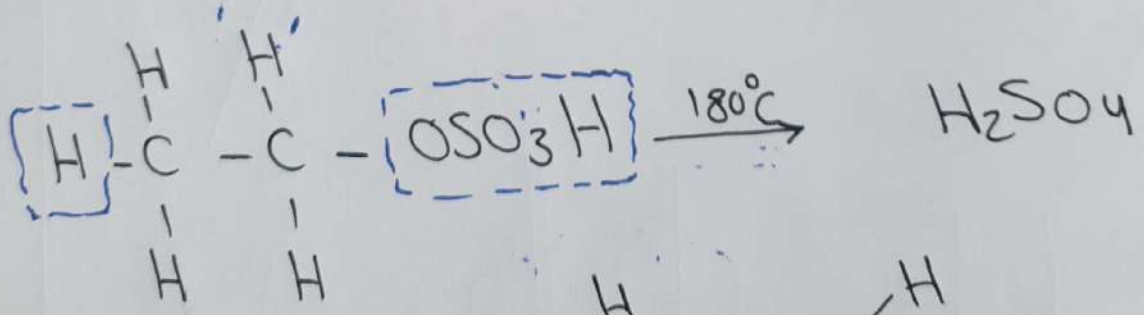 H H
H - C - C - OSO3H 180°C H2SO4
H H
H H